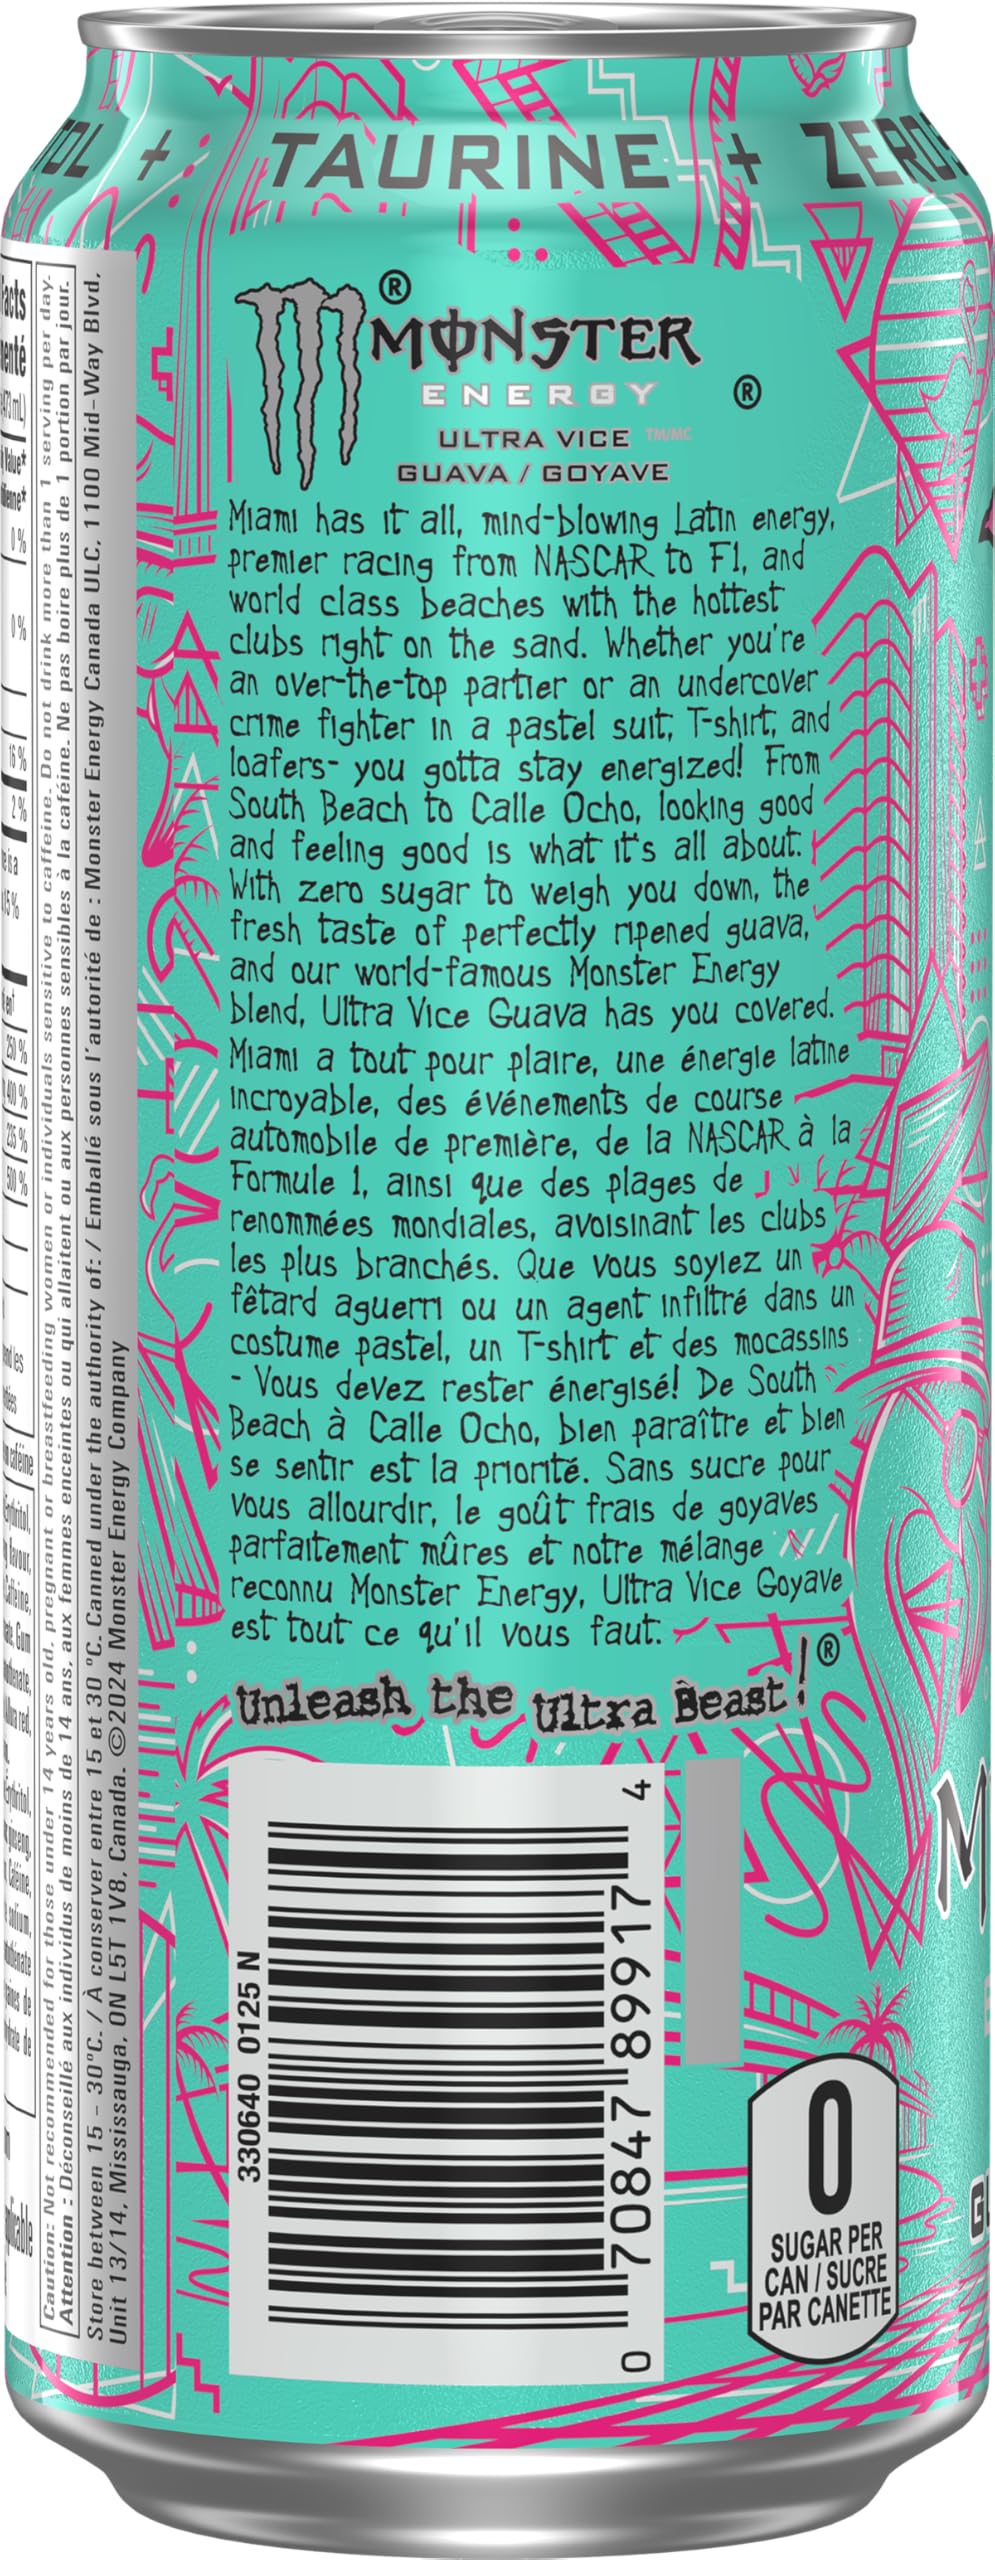 TAURINE +
MONSTER
ENERGY
®
®
ULTRA VICE TM/MC
GUAVA / GOYAVE
Miami has it all, mind-blowing Latin energy,
premier racing from NASCAR to F1, and
world class beaches with the hottest
clubs right on the sand. Whether you're
an over-the-top partier or an undercover
crime fighter in a pastel suit, T-shirt, and
loafers- you gotta stay energized! From
South Beach to Calle Ocho, looking good
and feeling good is what it's all about.
With zero sugar to weigh you down, the
fresh taste of perfectly ripened guava,
and our world-famous Monster Energy
blend, Ultra Vice Guava has you covered.
Miami a tout pour plaire, une énergie latine
incroyable, des événements de course
automobile de première, de la NASCAR à la
Formule 1, ainsi que des plages de
renommées mondiales, avoisinant les clubs
les plus branchés. Que vous soyiez un
fêtard aguerri ou un agent infiltré dans un
costume pastel, un T-shirt et des mocassins
- Vous devez rester énergisé! De South
Beach à Calle Ocho, bien paraître et bien
se sentir est la priorité. Sans sucre pour
vous allourdir, le goût frais de goyaves
parfaitement mûres et notre mélange
reconnu Monster Energy, Ultra Vice Goyave
est tout ce qu'il vous faut.
Unleash the Ultra Beast! ®
330640 0125 N
0 70847 89917 4
0
SUGAR PER
CAN / SUCRE
PAR CANETTE
Caution: Not recommended for those under 14 years old, pregnant or breastfeeding women or individuals sensitive to caffeine. Do not drink more than 1 serving per day.
Attention : Déconseillé aux individus de moins de 14 ans, aux femmes enceintes ou qui allaitent ou aux personnes sensibles à la caféine. Ne pas boire plus de 1 portion par jour.
Store between 15 - 30°C. / À conserver entre 15 et 30 °C. Canned under the authority of: / Emballé sous l'autorité de : Monster Energy Canada ULC, 1100 Mid-Way Blvd,
Unit 13/14, Mississauga, ON L5T 1V8, Canada. ©2024 Monster Energy Company
0 %
0 %
16 %
2 %
250 %
400 %
235 %
500 %